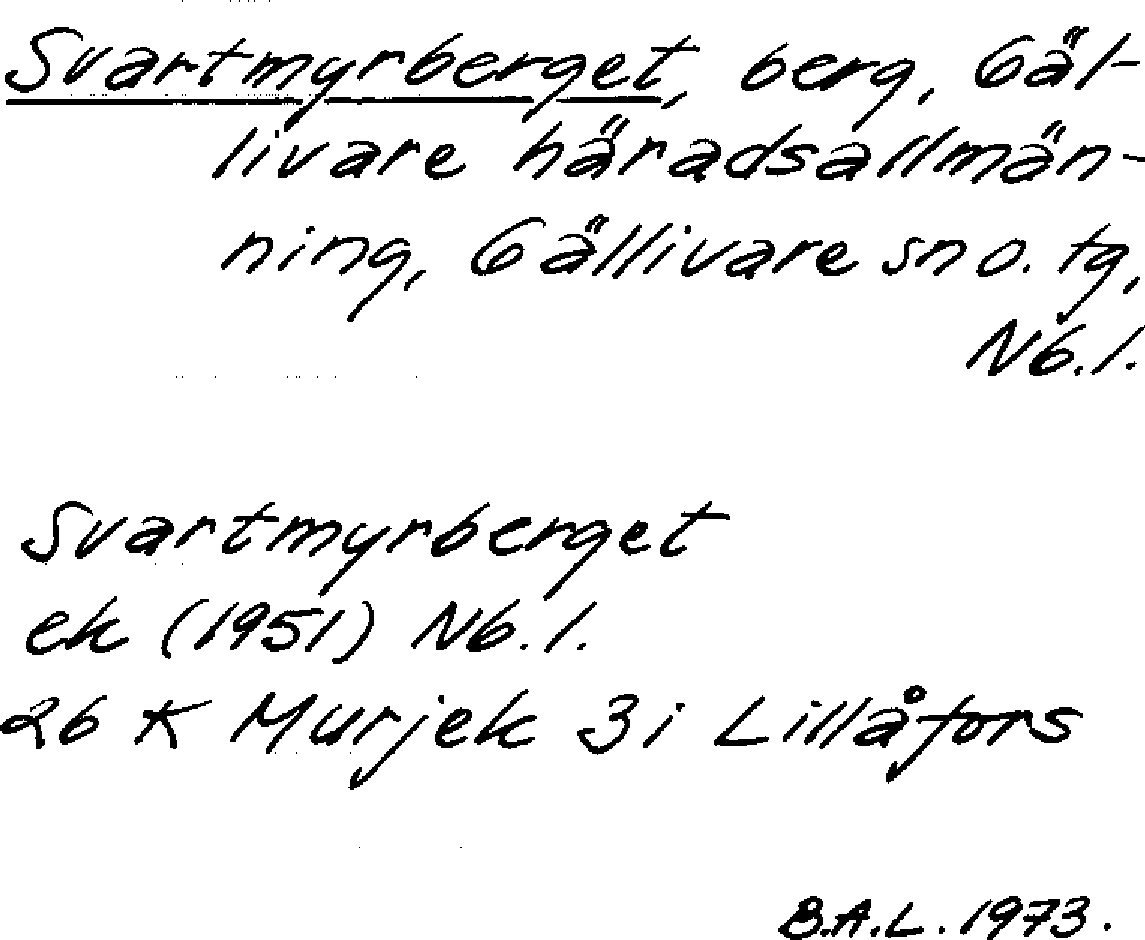 Svartmyrberget, berg, Gäl-
livare häradsallmän-
ning, Gällivare sn o. tg,
Nb. l.
Svartmyrberget
ek (1951) Nb. l.
26 K Murjek 3i Lillåfors
B.A.L. 1973.